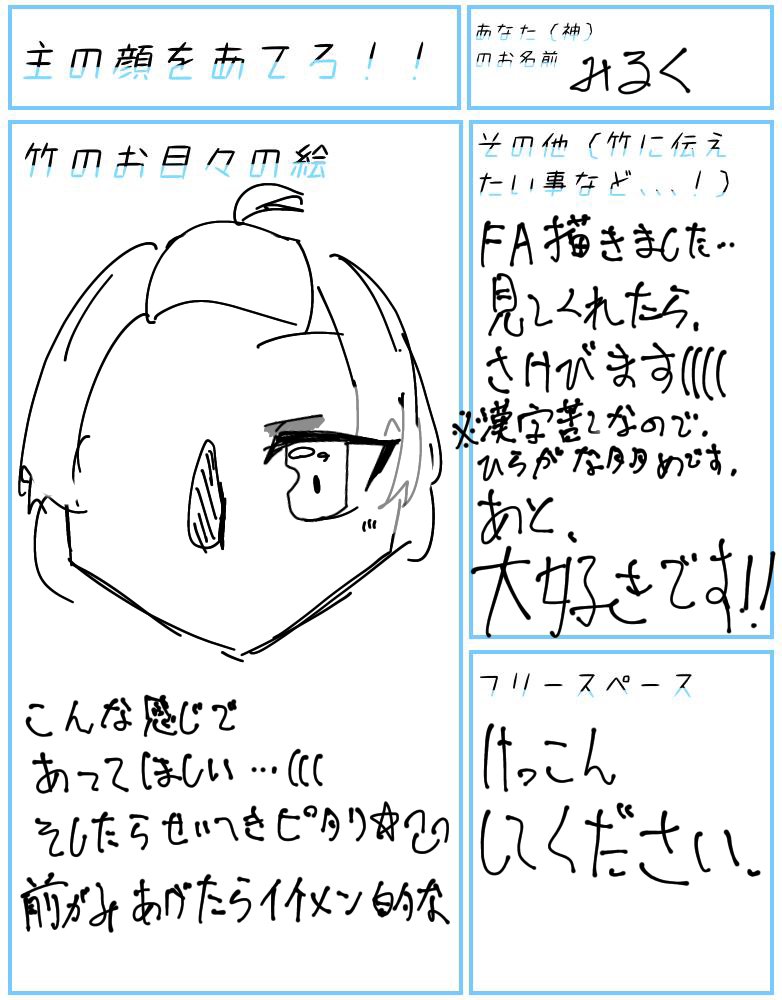 主の顔をあてろ！！
あなた（神）
のお名前
みるく
竹のお目々の絵
こんな感じで
あってほしい…(((
そしたらせいへきピタリ☆
前がみあげたらイケメン的な
その他（竹に伝え
たい事など、、、！）
FA描きました…
見てくれたら、
さけびます((((
※漢字苦てなので、
ひらがな多めです。
あと、
大好きです!!
フリースペース
けっこん
してください。